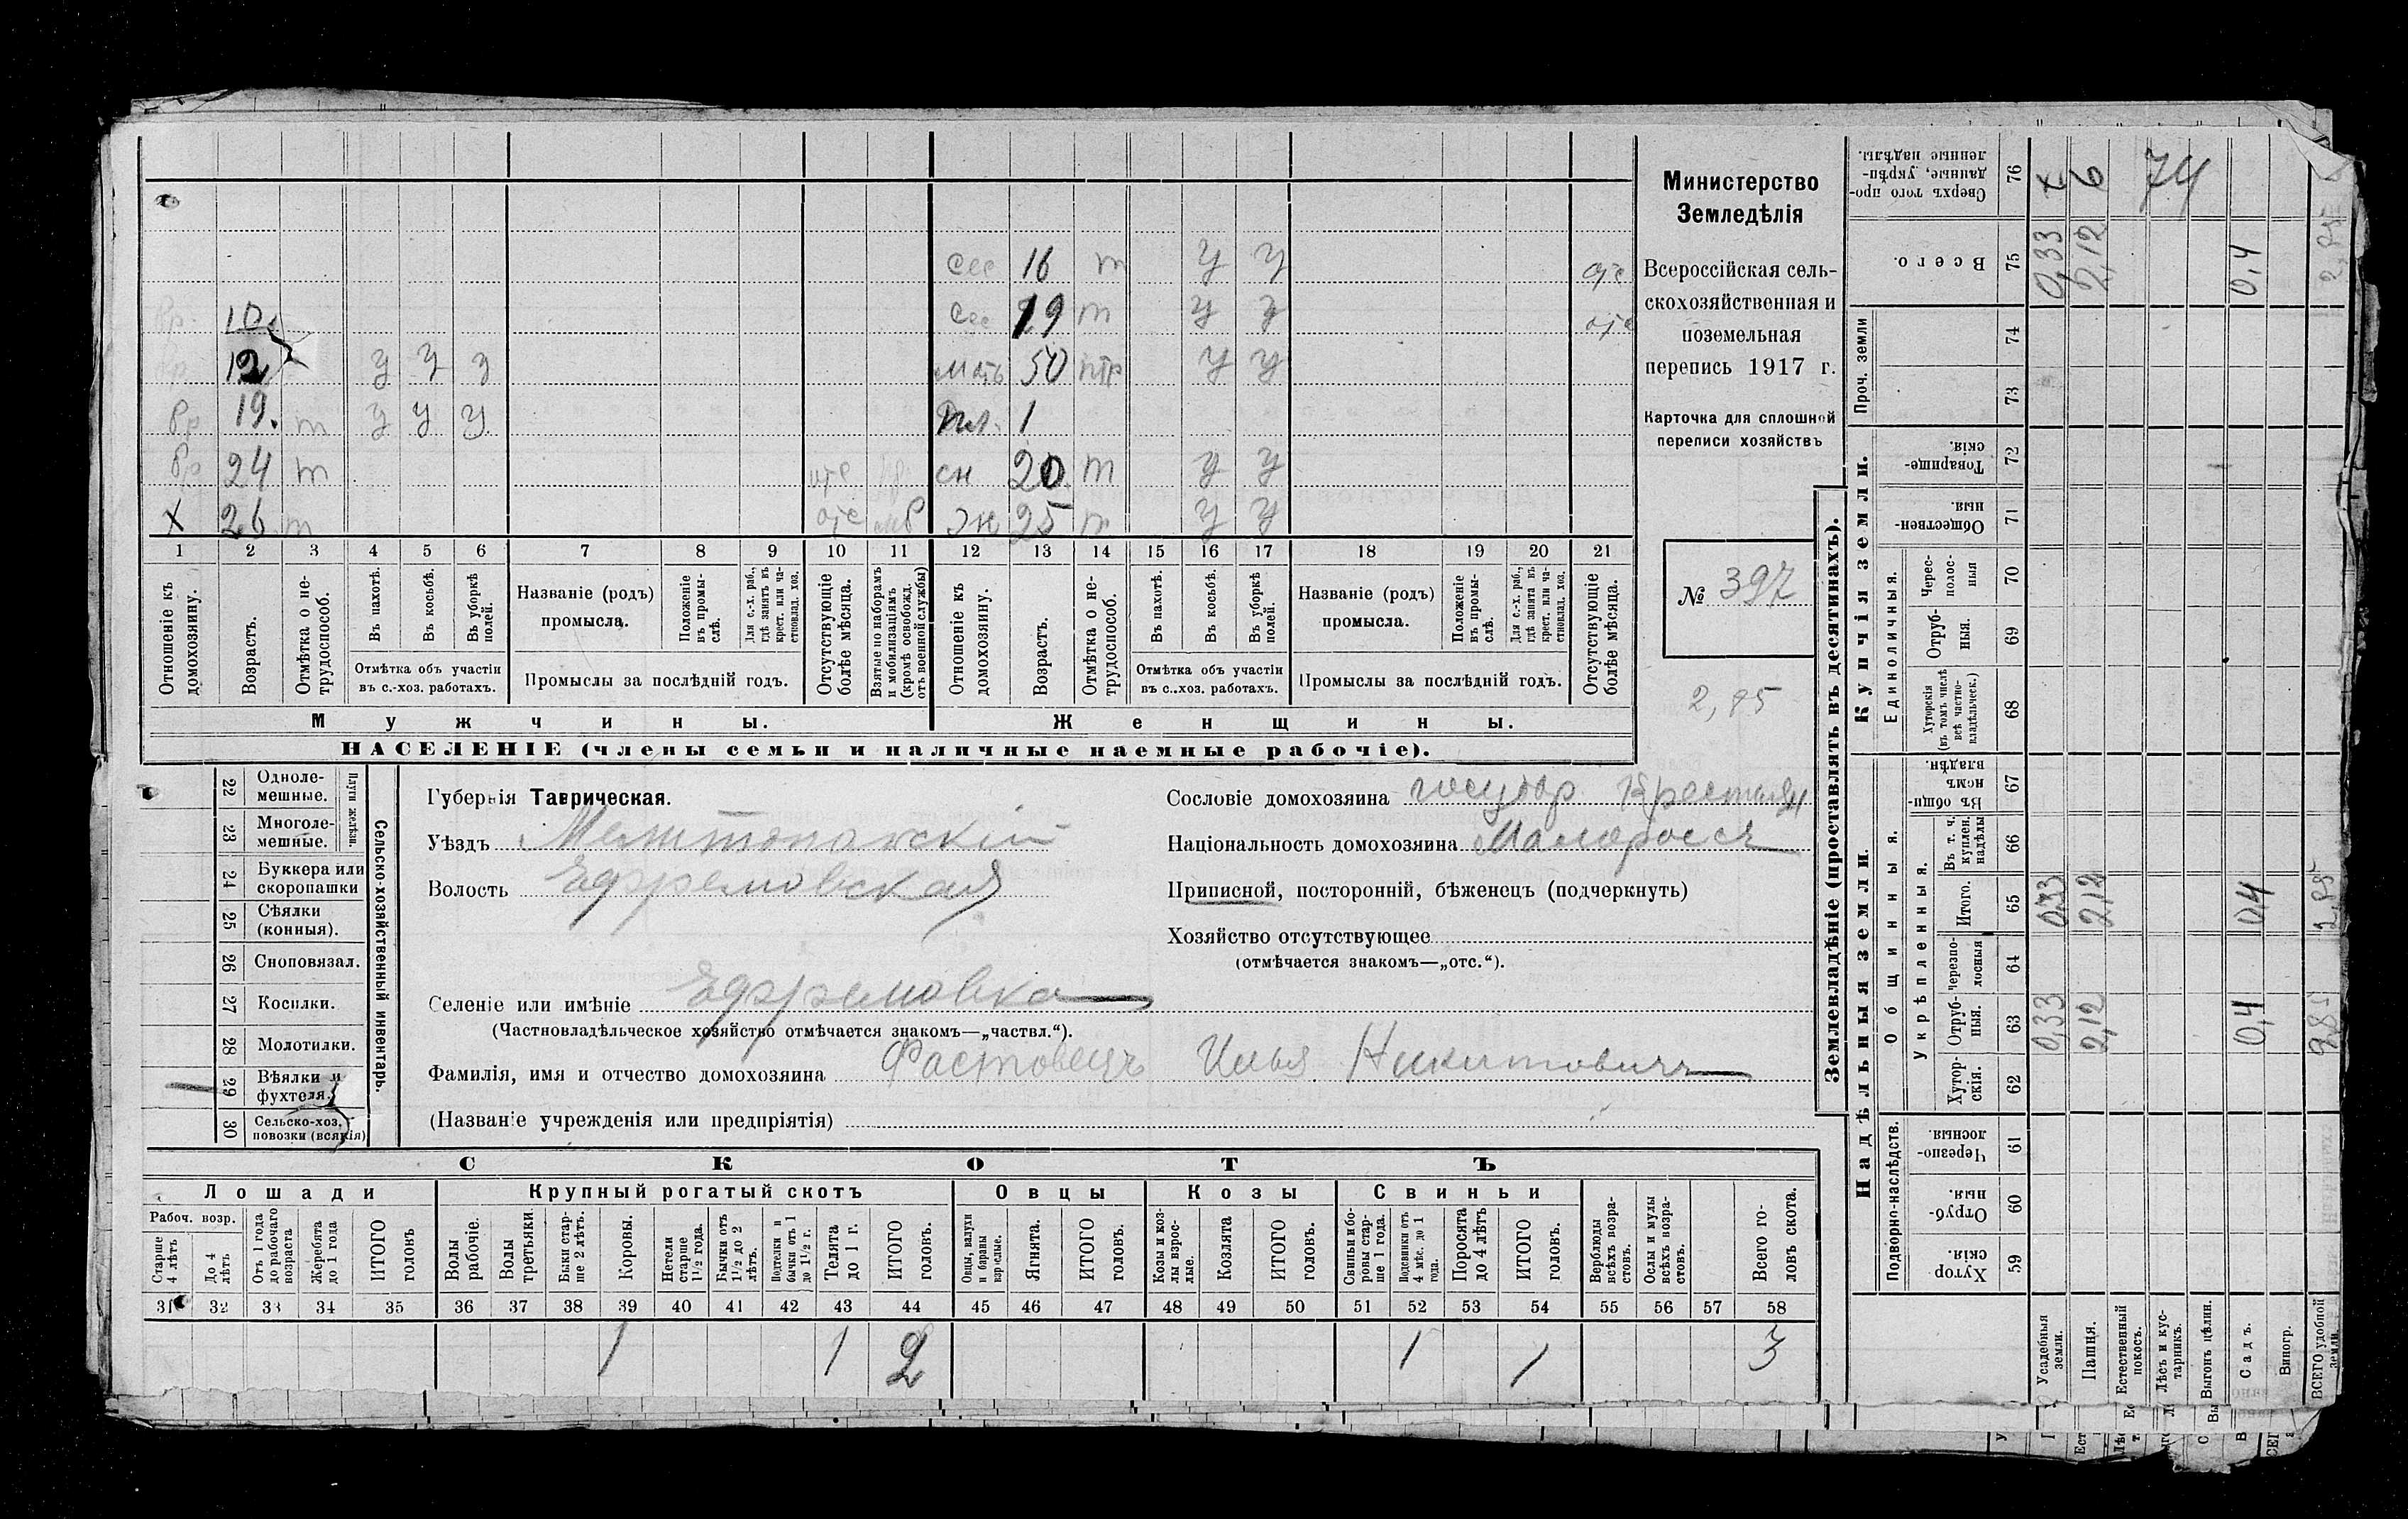 сес 16 т у у отс
бр. 10. сес 19 т у у отс
бр 12 у у у мать 50 нтр у у
бр 19. т у у у пл. 1
бр 24 т отс сн 20 т у у
х 26 т отс мб Жк 25 т у у
1 2 3 4 5 6 7 8 9 10 11 12 13 14 15 16 17 18 19 20 21
Отношеніе къ домохозяину.
Возрастъ.
Отмѣтка о нетрудоспособ.
Въ пахотѣ.
Въ косьбѣ.
Въ уборкѣ полей.
Отмѣтка объ участіи
въ с.-хоз. работахъ.
Названіе (родъ)
промысла.
Положеніе въ промыслѣ.
Для с.-х. раб., гдѣ занятъ въ крест. или частновлад. хоз.
Промыслы за послѣдній годъ.
Отсутствующіе болѣе мѣсяца.
Взятые по наборамъ и мобилизаціямъ (кромѣ освобожд. отъ военной службы)
Отношеніе къ домохозяину.
Возрастъ.
Отмѣтка о нетрудоспособ.
Въ пахотѣ.
Въ косьбѣ.
Въ уборкѣ полей.
Отмѣтка объ участіи
въ с.-хоз. работахъ.
Названіе (родъ)
промысла.
Положеніе въ промыслѣ.
Для с.-х. раб., гдѣ занята въ крест. или частновлад. хоз.
Промыслы за послѣдній годъ.
Отсутствующіе болѣе мѣсяца.
Мужчины. Женщины.
НАСЕЛЕНІЕ (члены семьи и наличные наемные рабочіе).
Министерство
Земледѣлія
Всероссійская сель-
скохозяйственная и
поземельная
перепись 1917 г.
Карточка для сплошной
переписи хозяйствъ
№ 397
2,85
Сельско-хозяйственный инвентарь.
Плуги желѣзн.
22 Однолемешные.
23 Многолемешные.
24 Буккера или скоропашки
25 Сѣялки (конныя).
26 Сноповязал.
27 Косилки.
28 Молотилки.
29 Вѣялки и фухтеля.
30 Сельско-хоз. повозки (всякія)
Губернія Таврическая.
Уѣздъ Мелитопольскій
Волость Ефремовская
Селеніе или имѣніе Ефремовка
(Частновладѣльческое хозяйство отмѣчается знакомъ—„частвл.“).
Фамилія, имя и отчество домохозяина Фастовецъ Илья Никитовичъ
(Названіе учрежденія или предпріятія)
Сословіе домохозяина государ Крестьян
Національность домохозяина Малоросс
Приписной, посторонній, бѣженецъ (подчеркнуть)
Хозяйство отсутствующее
(отмѣчается знакомъ—„отс.“).
СКОТЪ
Лошади Крупный рогатый скотъ Овцы Козы Свиньи
Рабоч. возр.
Старше 4 лѣтъ
До 4 лѣтъ
Отъ 1 года до рабочаго возраста
Жеребята до 1 года
ИТОГО головъ
Волы рабочіе.
Волы третьяки.
Быки старше 2 лѣтъ.
Коровы.
Нетели старше 1 1/2 года.
Бычки отъ 1 1/2 до 2 лѣтъ.
Подтелки и бычки отъ 1 до 1 1/2 г.
Телята до 1 г.
ИТОГО головъ.
Овцы, валухи и бараны взрослые.
Ягнята.
ИТОГО головъ.
Козы и козлы взрослые.
Козлята
ИТОГО головъ.
Свиньи и боровы старше 1 года.
Подсвинки отъ 4 мѣс. до 1 года.
Поросята до 4 лѣтъ
ИТОГО головъ.
Верблюды всѣхъ возрастовъ.
Ослы и мулы всѣхъ возрастовъ.
Всего головъ скота.
31 32 33 34 35 36 37 38 39 40 41 42 43 44 45 46 47 48 49 50 51 52 53 54 55 56 57 58
1 1 2 1 1 3
Землевладѣніе (проставлять въ десятинахъ).
Надѣльныя земли. Купчія земли. Проч. земли
Подворно-наслѣдств.
Хуторскія. 59
Отрубныя. 60
Черезполосныя. 61
Общинныя.
Укрѣпленныя.
Хуторскія. 62
Отрубныя. 63 0,33 2,12 0,4 2,85
Черезполосныя 64
Итого. 65 0,33 2,12 0,4 2,85
Въ т. ч. куплен. надѣлы 66
Въ общинномъ владѣн. 67
Единоличныя.
Хуторскія (въ томъ числѣ всѣ частновладѣльческ.) 68
Отрубныя. 69
Черезполосныя 70
Общественныя. 71
Товарищескія. 72
73
74
Всего. 75 0,33 2,12 0,4 2,85
Сверхъ того проданные, укрѣпленные надѣлы. 76 х 6 74
Усадебныя земли.
Пашня.
Естественный покосъ.
Лѣсъ и кустарникъ.
Выгонъ цѣлин.
Садъ.
Виногр.
ВСЕГО удобной земли.